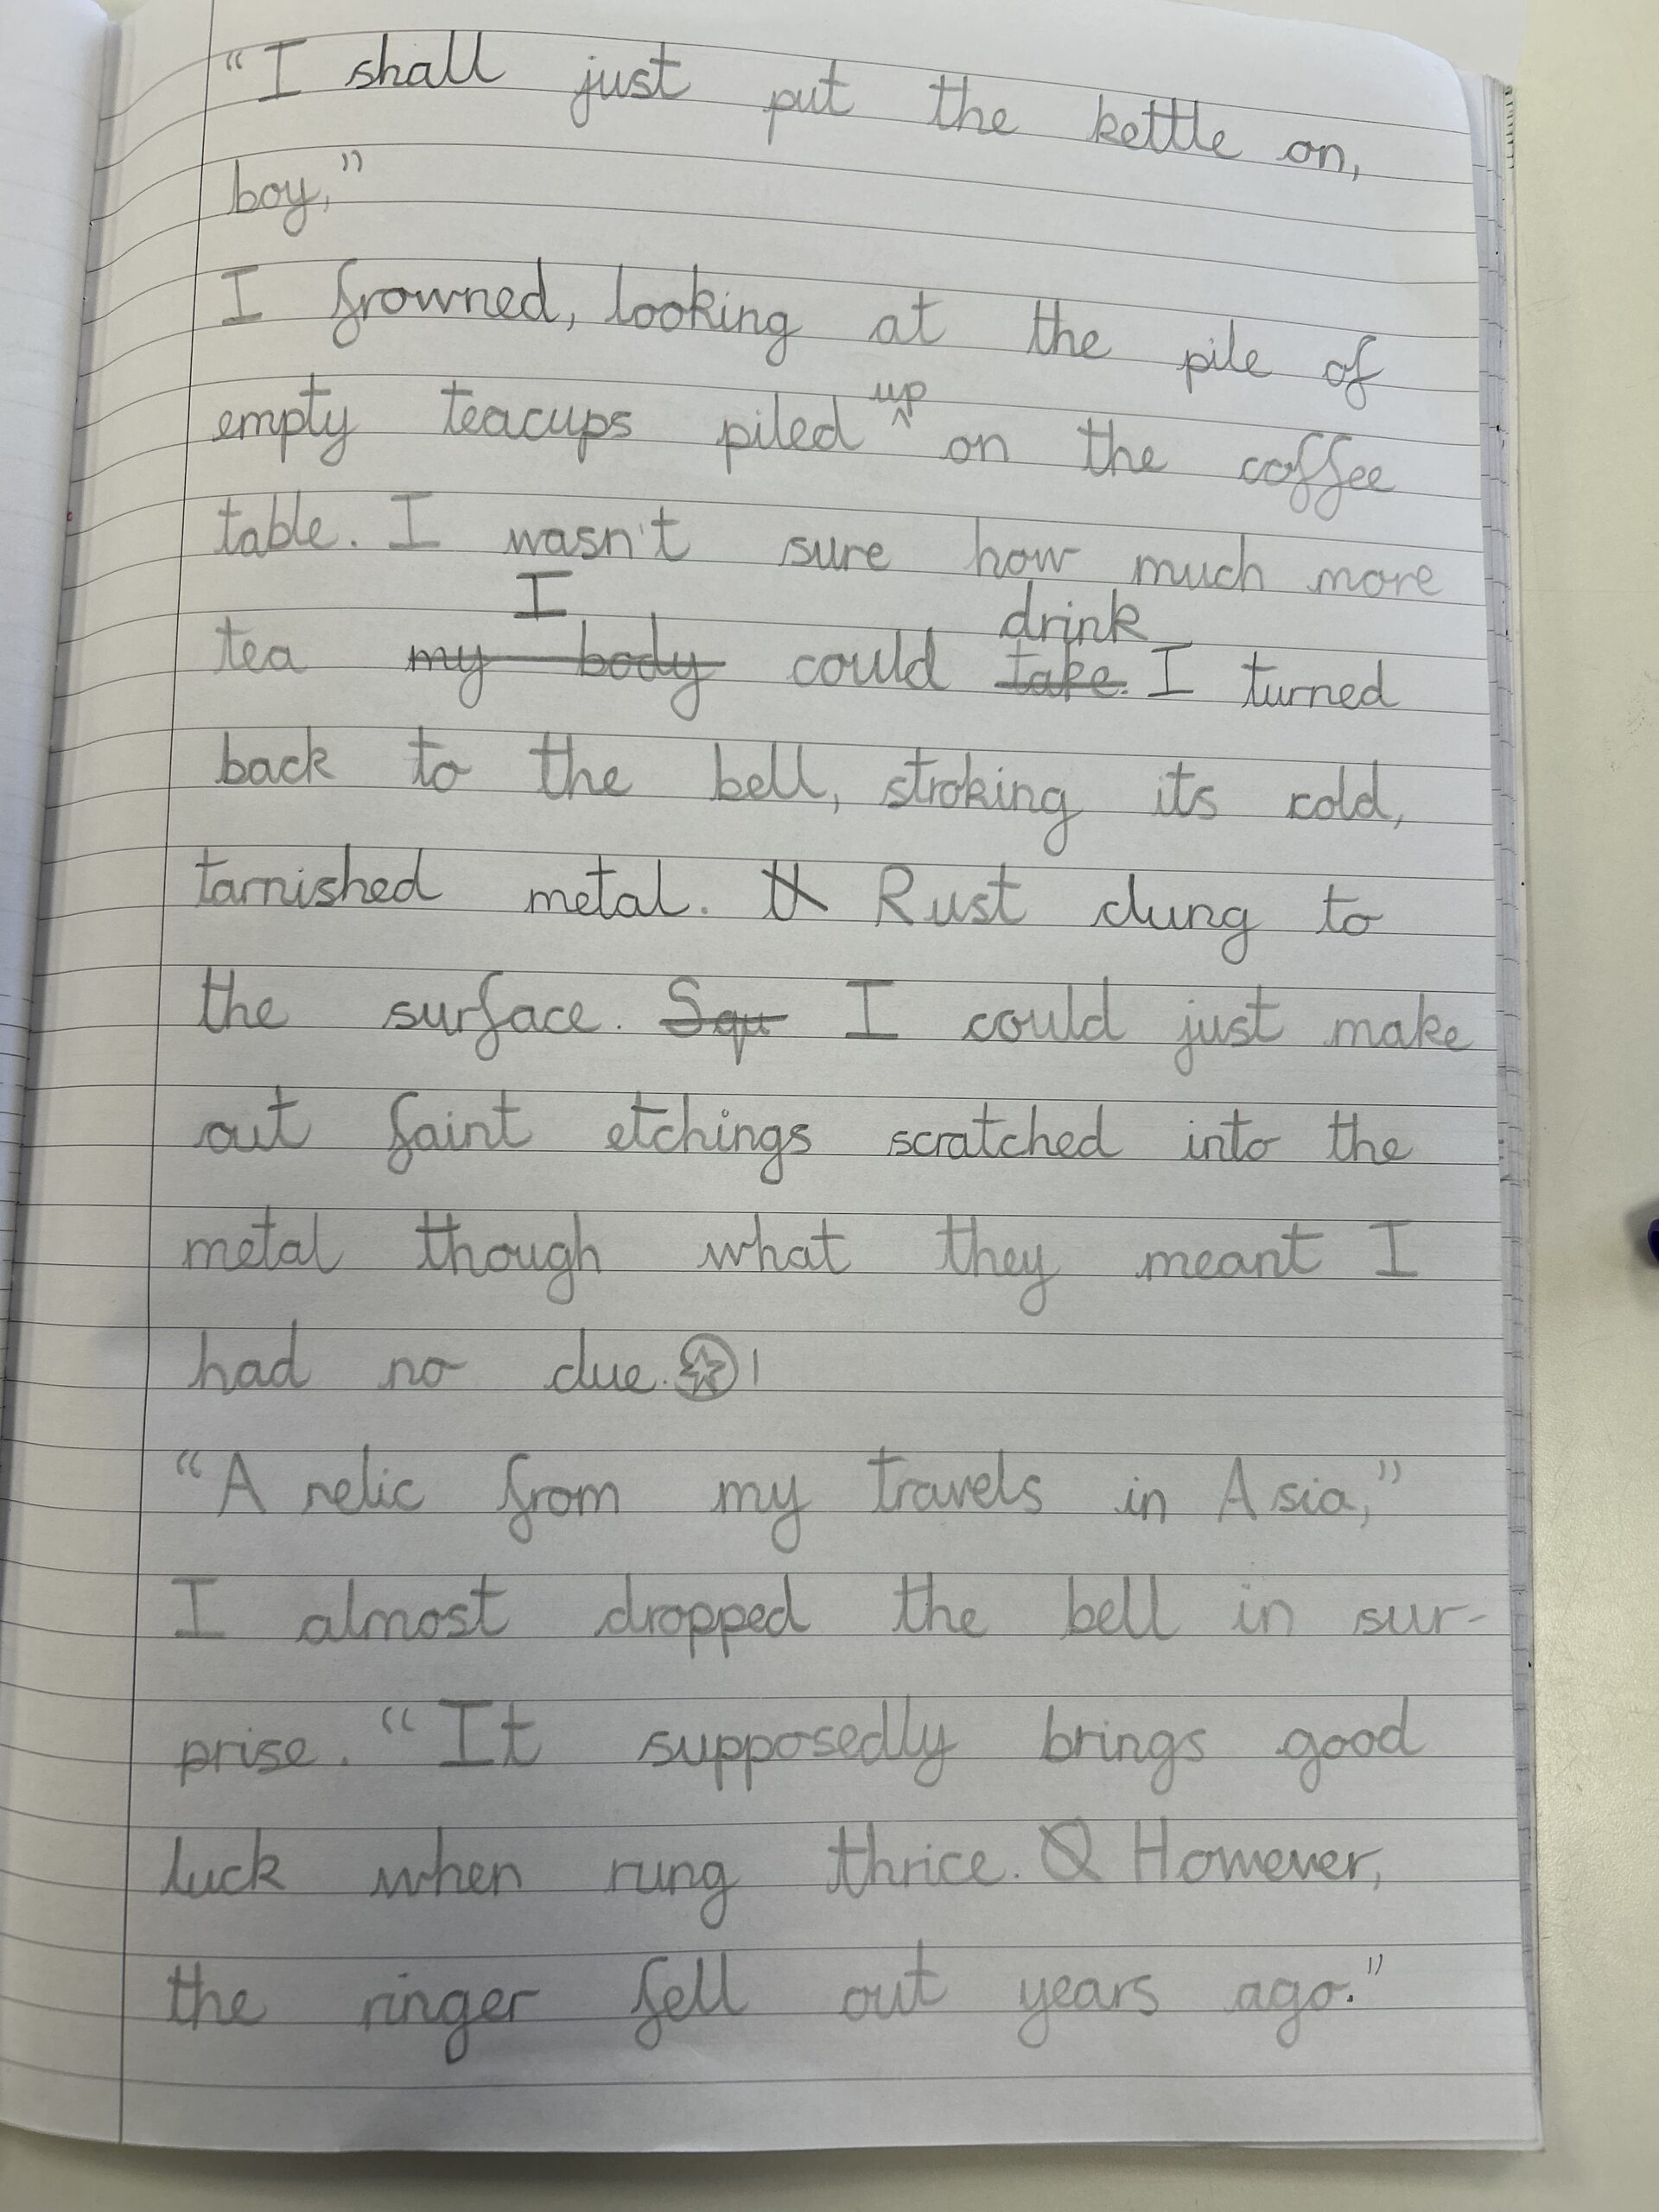 “I shall just put the kettle on,
boy,”
I frowned, looking at the pile of
empty teacups piled up on the coffee
table. I wasn't sure how much more
tea ~~my body~~ I could ~~take.~~ drink I turned
back to the bell, stroking its cold,
tarnished metal. ~~It~~ Rust clung to
the surface. ~~Squ~~ I could just make
out faint etchings scratched into the
metal though what they meant I
had no clue. ☆1
“A relic from my travels in Asia,”
I almost dropped the bell in sur-
prise. “It supposedly brings good
luck when rung thrice. ~~O~~ However,
the ringer fell out years ago.”